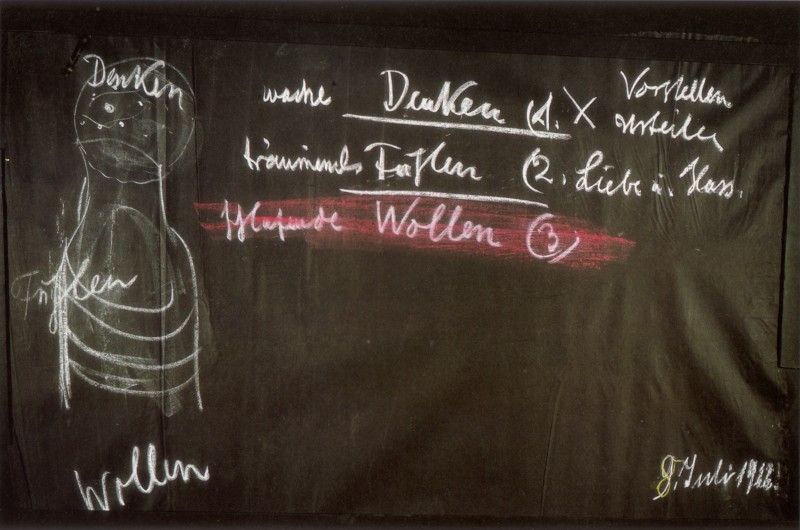 Denken
wache Denken (1. X Vorstellen
Urteilen
träumendes Fühlen (2. Liebe u. Hass.
schlafende Wollen (3)
Fühlen
Wollen
Juli 1922